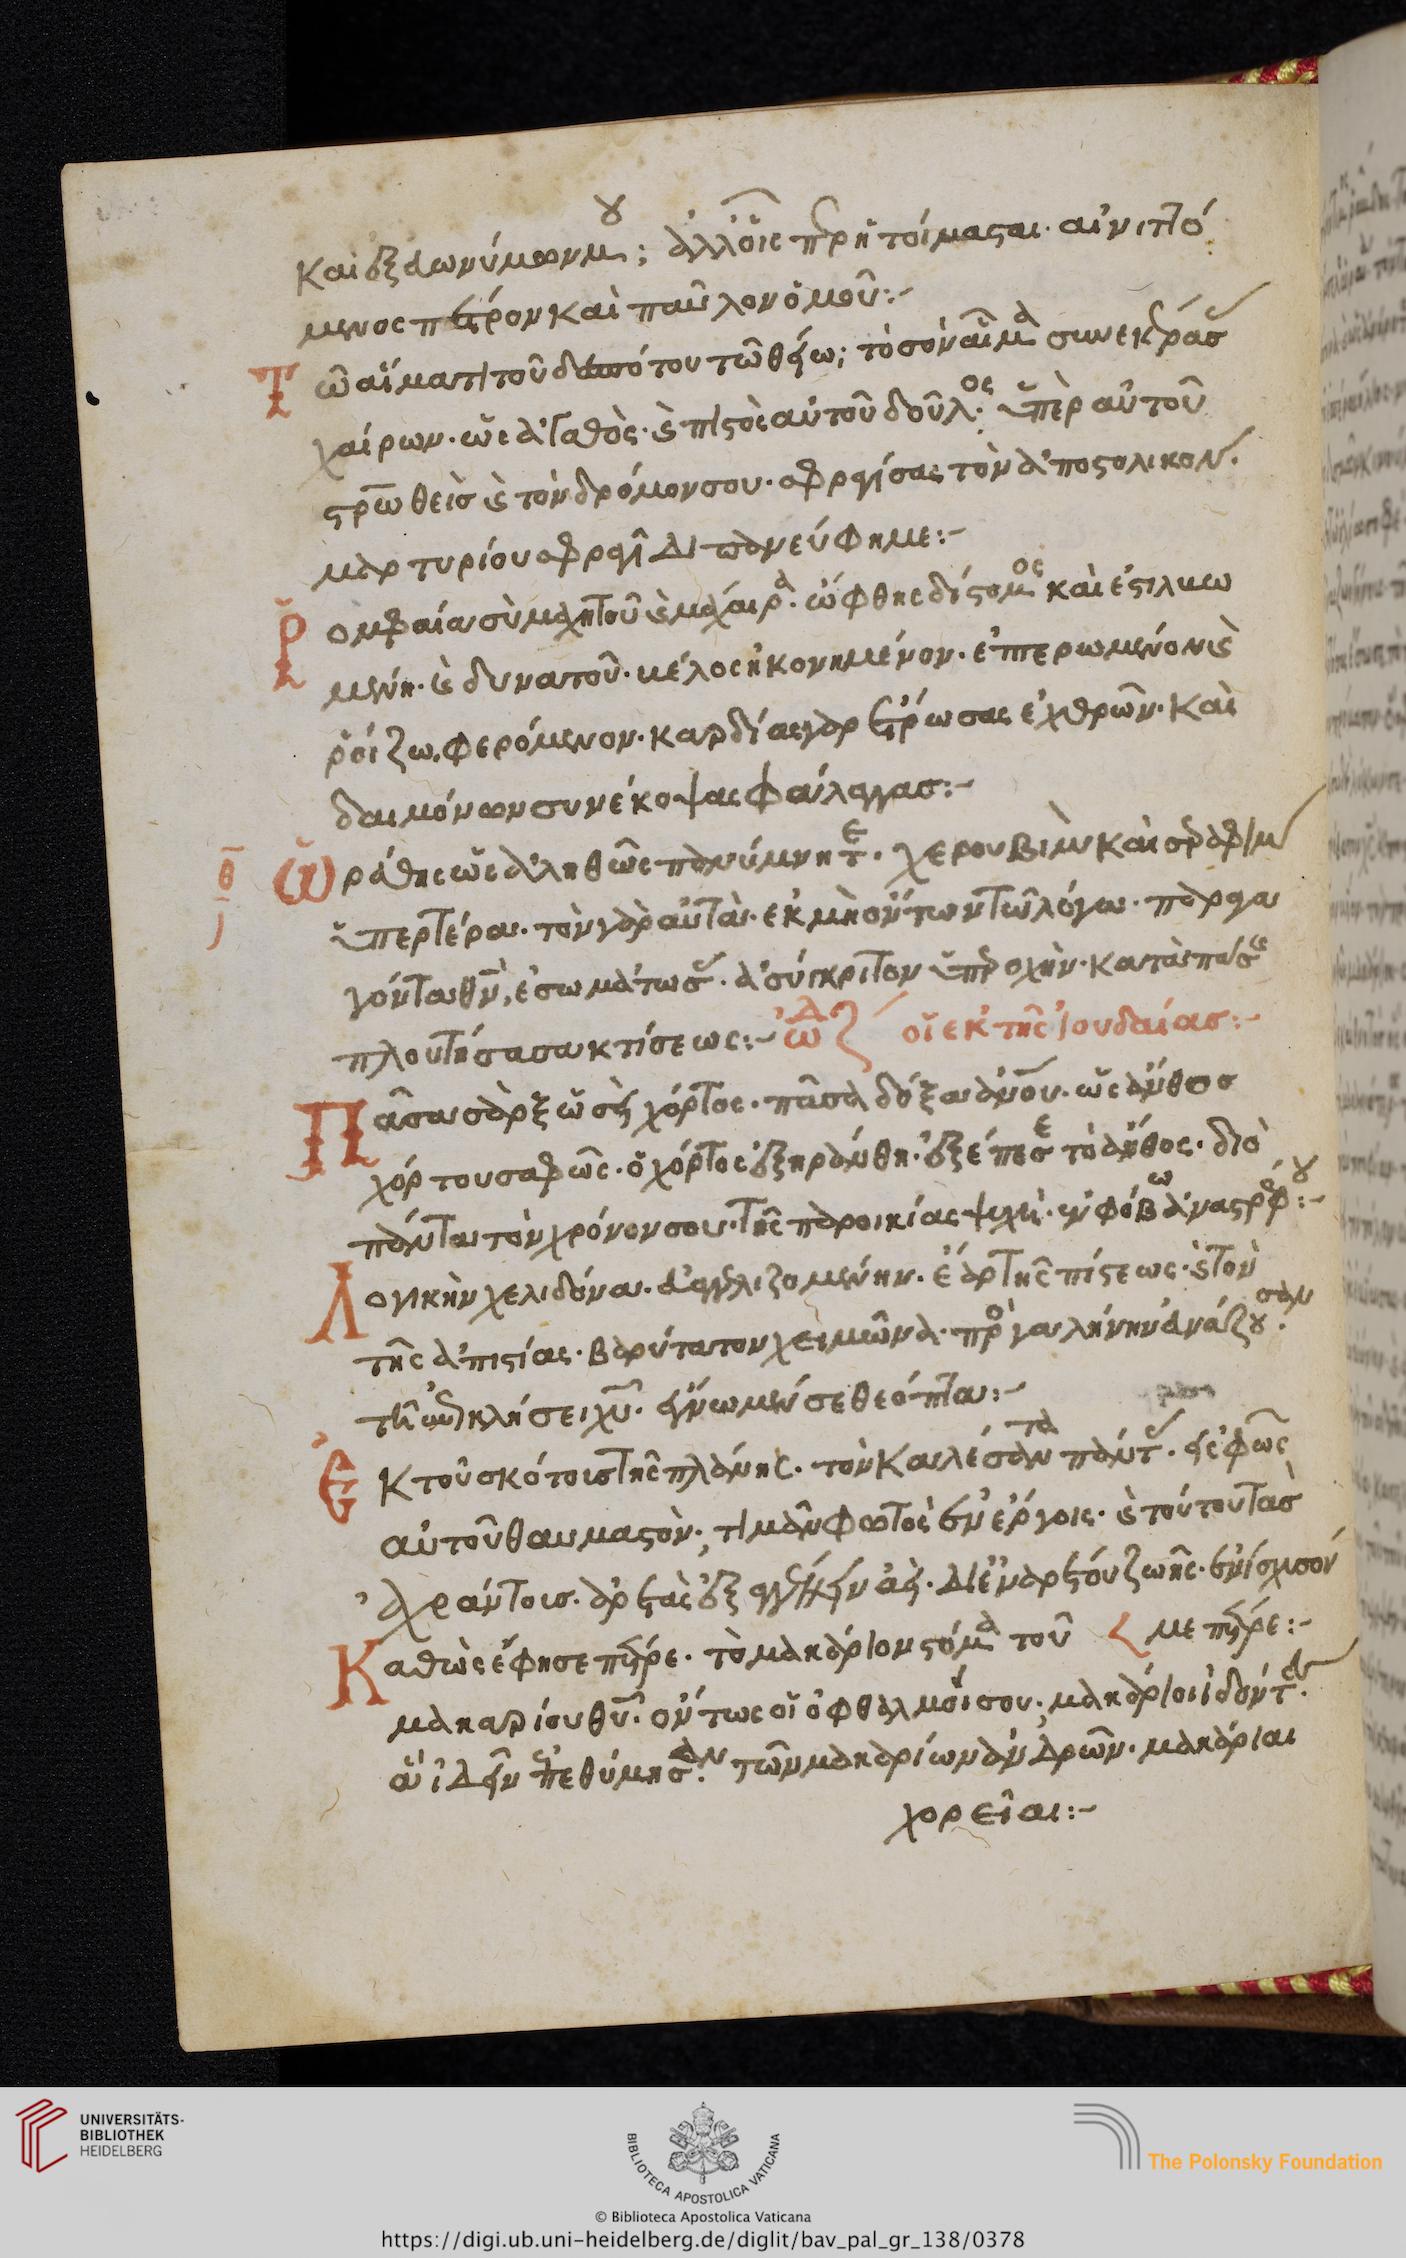 καὶ ἐξ ἀωνύμων μου; ἀλλ οἷς πρ ητοίμασαι. αἰνιττό
μενος πέτρον καὶ παῦλον ὁμοῦ:-
Τῶ αἵματι τοῦ δεσπότου τῶ θείω; τὸ σὸν αἷμα συνεκέρασ
χαίρων. ὡς ἀγαθὸς. καὶ πιστὸς αὐτοῦ δοῦλος. ὑπὲρ αὐτοῦ
στρωθεὶσ καὶ τὸν δρόμον σου. σφραγίσας τὸν ἀποστολικον.
μαρτυρίου σφραγῖδι πανεύφημε:-
Ρομφαία συμαχητοῦ καὶ μάχαιρα. ὤφθης δίστομος καὶ ἐστιλβω
μένη. καὶ δυνατοῦ. βέλος ἠκονημένον. ἐπτερωμένον καὶ
ῥοίζω. φερόμενον. καρδίας γὰρ ἔτρωσας ἐχθρῶν. καὶ
δαιμόνων συνέκοψας φάλαγγασ:-
θ Ὡράθης ὡς ἀληθῶς πανύμνητε. χερουβὶμ καὶ σεραφὶμ
ὑπερτέρα. τὸν γὰρ αὐτὰ. ἐκ μὴ ὄντων τῶ λόγω. παραγα
γόντα θν, ἐσωμάτωσ. ἀσύγκριτον ὑπεροχὴν. κατὰ πάσης
πλουτήσασα κτίσεως:- ὠδ ζ οἱ ἐκ τῆς ἰουδαίασ:-
Πᾶσα σὰρξ ὡσεὶ χόρτος. πᾶσα δόξα ἀνου. ὡς ἄνθοσ
χόρτου σαφῶς. ὁ χόρτος ἐξηράνθη. ἐξέπεσε τὸ ἄνθος. διὸ
πάντα τὸν χρόνον σου. τῆς παροικίας ψυχὴ. ἐν φόβω ἀναστράφου:-
Λογικὴν χελιδόνα. εὐαγγελιζομένην. ἔαρ τῆς πίστεως. καὶ τὸν
τῆς ἀπιστίας. βαρύτατον χειμῶνα. πρὸ γαλήνην ἀνάζουσαν.
τῆ ἐπικλήσει χυ. ἔγνωμέν σε θεόπτα:-
Ἐκ τοῦ σκότοις τῆς πλάνης. τὸν καλέσαντα πάντ. εἰς φῶς
αὐτοῦ θαυμαστὸν. τιμᾶν φωτὸς ἐν ἔργοις. καὶ τούτου τὰσ
ἀχράντοισ. ἀρετὰς ἐξαγγέλλειν ἀεὶ. δι ἐναρέτου ζωῆς. ἐνίσχυσόν
Καθὼς ἔφησε πέτρε. τὸ μακάριον στόμα τοῦ με πέτρε:-
μακαρίου θυ. ὄντως οἱ ὀφθαλμοί σου. μακάριοι ἰδόντες.
ἃ ἰδεῖν ἐπεθύμησαν. τῶν μακαρίων ἀνδρῶν. μακάριαι
χορεῖαι:-
UNIVERSITÄTS-
BIBLIOTHEK
HEIDELBERG
BIBLIOTECA APOSTOLICA VATICANA
The Polonsky Foundation
© Biblioteca Apostolica Vaticana
https://digi.ub.uni-heidelberg.de/diglit/bav_pal_gr_138/0378